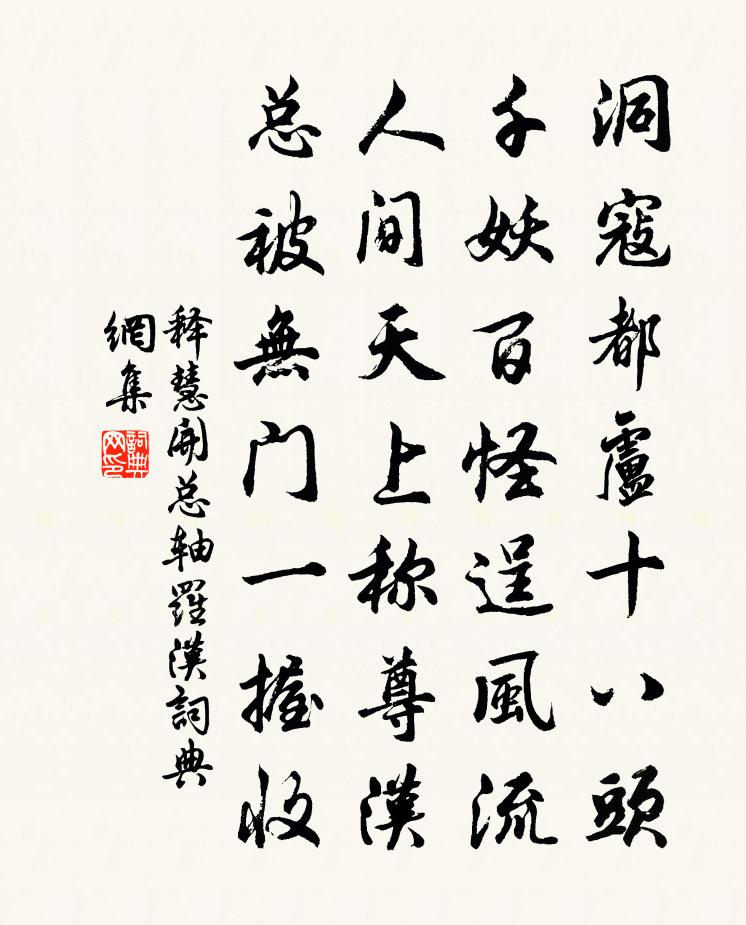 洞寇都盧十八頭
千妖百怪逞風流
人间天上称尊漢
总被無门一握收
释慧開总轴羅漢詞典
網集
詞典网印